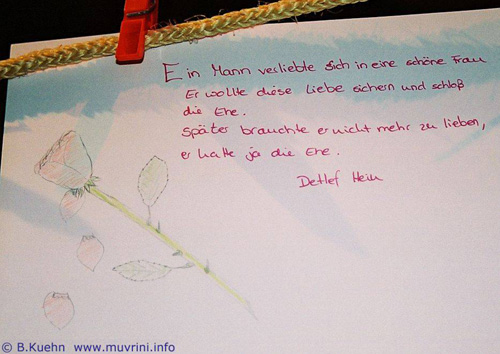 Ein Mann verliebte sich in eine schöne Frau
Er wollte diese Liebe sichern und schloß
die Ehe.
Später brauchte er nicht mehr zu lieben,
er hatte ja die Ehe.
Detlef Hein
© B.Kuehn www.muvrini.info